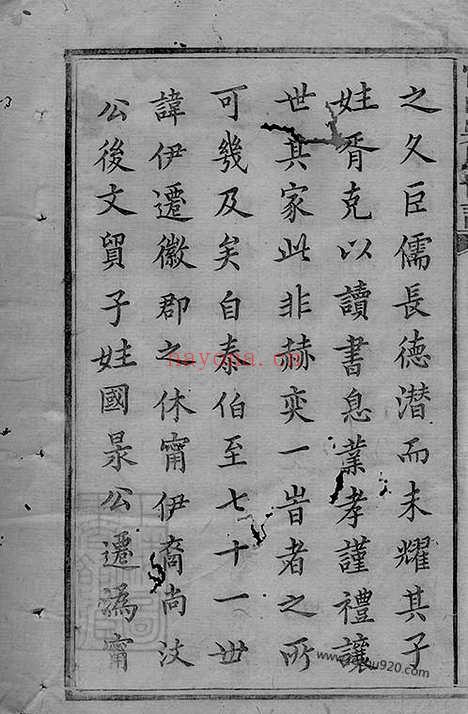 之久巨儒長德潛而未耀其子
姓胥克以讀書息業孝謹禮讓
世其家此非赫奕一旹者之所
可幾及矣自泰伯至七十一世
諱伊遷徽郡之休甯伊裔尚汶
公後文貿子姓國景公遷為甯
nayona.cn